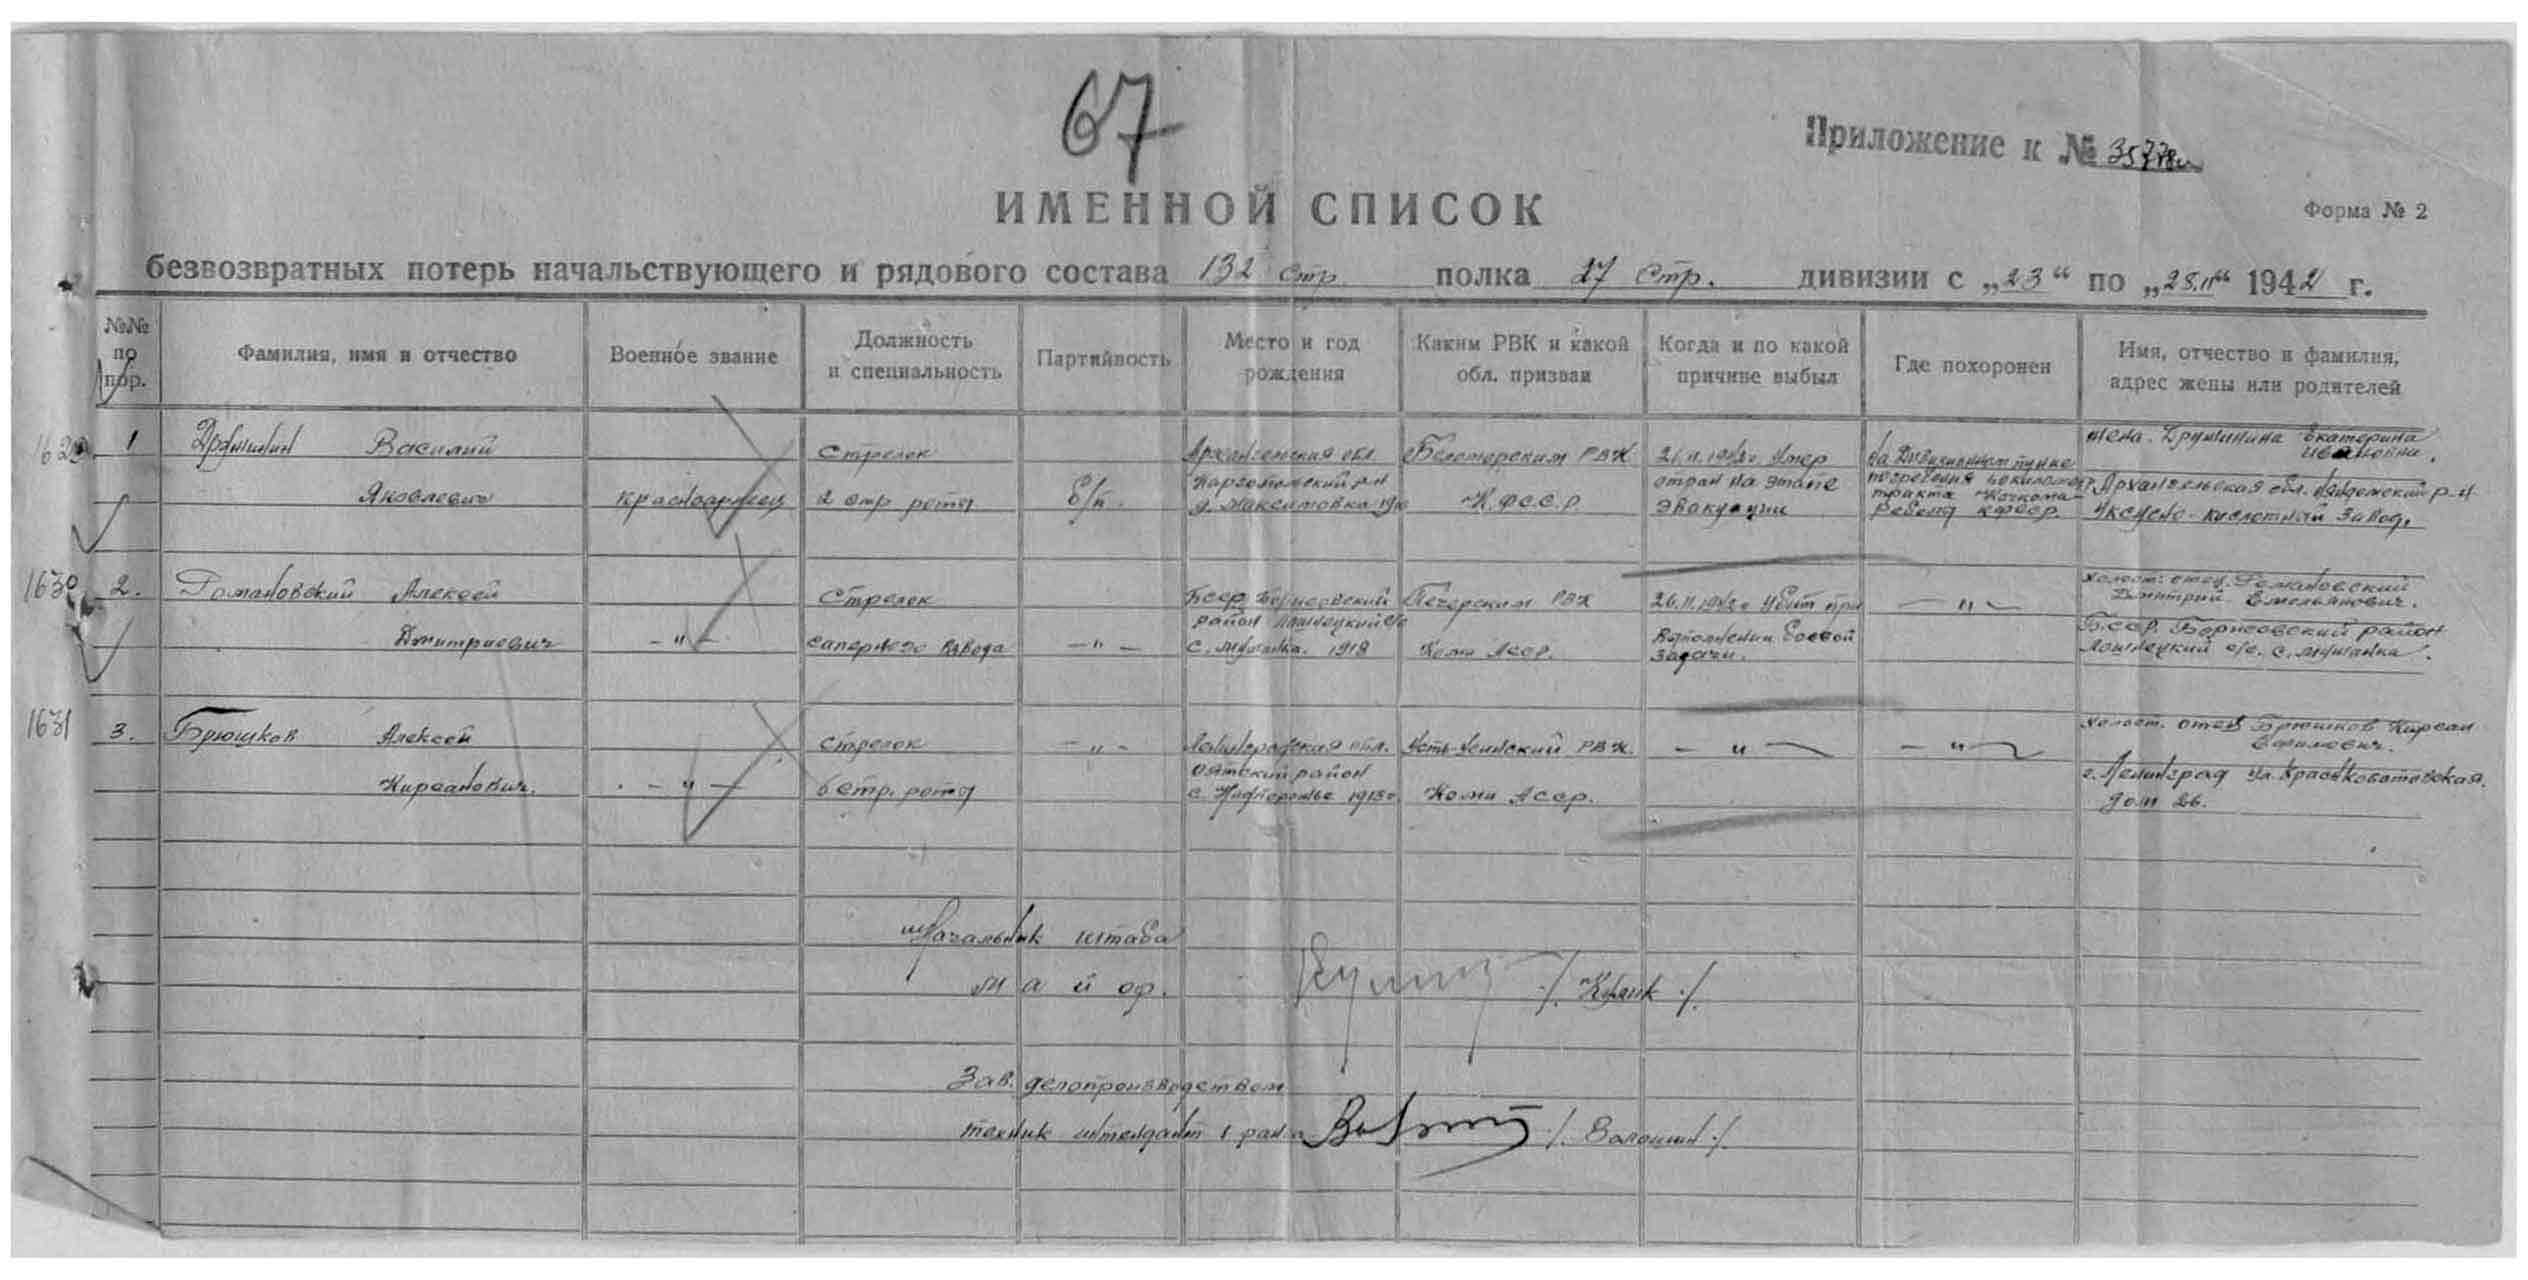 67
Приложение к №
ИМЕННОЙ СПИСОК
Форма № 2
безвозвратных потерь начальствующего и рядового состава 132 стр. полка 27 стр. дивизии с „23“ по „28.II“ 1942 г.
№№ по пор.
Фамилия, имя и отчество
Военное звание
Должность и специальность
Партийность
Место и год рождения
Каким РВК и какой обл. призван
Когда и по какой причине выбыл
Где похоронен
Имя, отчество и фамилия, адрес жены или родителей
1
Дружинин Василий
Яковлевич
красноармеец
стрелок
2 стр роты
б/п.
Архангельская обл.
Каргопольский р-н
д. Максимовка
Беломорским РВК
К.Ф.С.С.Р.
26.II.1942г умер
от ран на этапе
эвакуации
на Дивизионном пункте
погребения
тракта Кочкома-
Реболы КФССР.
жена. Дружинина Екатерина
Ивановна.
Архангельская обл. Няндомский р-н
Уксусно-кислотный завод.
1630
2.
Домановский Алексей
Дмитриевич
-"-
Стрелок
саперного взвода
-"-
БССР Борисовский
район Лошницкий с/с
с. 1918
Печерским РВК
Коми АССР.
26.II.1942г убит при
выполнении боевой
задачи.
-"-
холост. отец. Домановский
Дмитрий Емельянович.
БССР. Борисовский район
Лошницкий с/с. с.
1631
3.
Брюшков Алексей
Кирсанович.
-"-
стрелок
6 стр. роты
-"-
Ленинградская обл.
Оятский район
с. 1913г
Усть-Усинский РВК.
Коми АССР.
-"-
-"-
холост. отец Брюшков Кирсан
Ефимович.
г. Ленинград ул.
дом 26.
Начальник штаба
майор.
Зав. делопроизводством
техник интендант 1 ранга